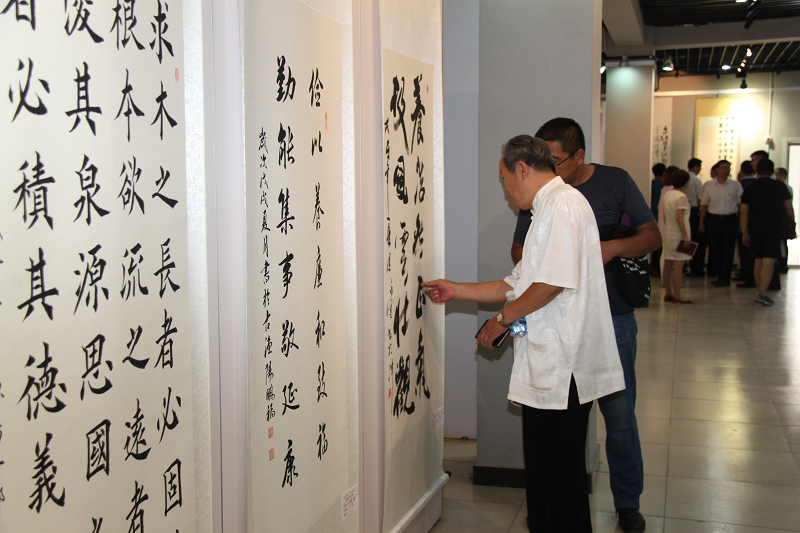 求木之長者必固
根本欲流之遠者
浚其泉源思國
者必積其德義
儉以養廉和致福
勤能集事敬延康
歲次戊戌夏月書於古漁陽鵬福
養浩然正氣
極風雲壯觀